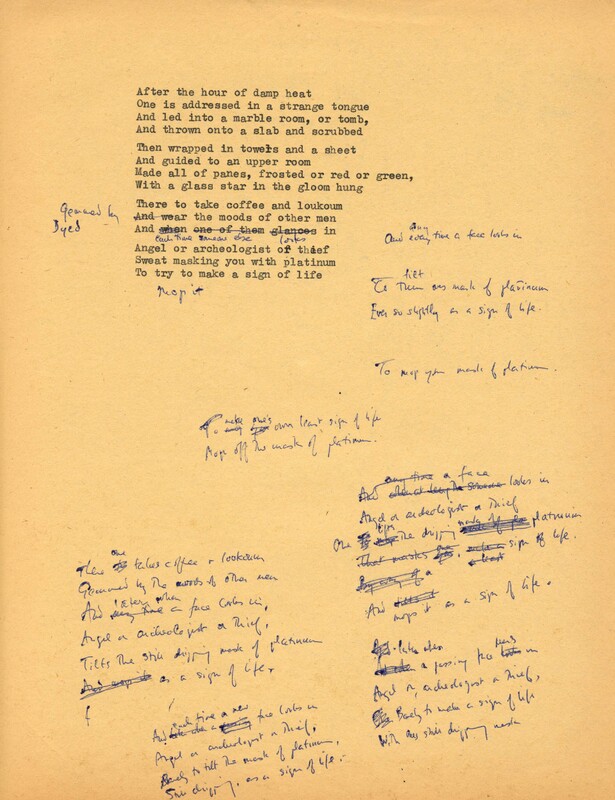 After the hour of damp heat
One is addressed in a strange tongue
And led into a marble room, or tomb,
And thrown onto a slab and scrubbed
Then wrapped in towels and a sheet
And guided to an upper room
Made all of panes, frosted or red or green,
With a glass star in the gloom hung
There to take coffee and loukoum
Gemmed by
And wear the moods of other men
Dyed
And when one of them glances in
each time someone else looks
Angel or archeologist or thief
Sweat masking you with platinum
To try to make a sign of life
Mop it
any
And every time a face looks in
tilt
To Then one's mask of platinum
Ever so slightly as a sign of life.
To mop your mask of platinum.
To make one's own least sign of life
Mops off the mask of platinum.
any time a face
And looks in
Angel or archeologist or Thief
One tips the dripping mask of platinum
That masks sign of life.
a
And
mops it as a sign of life.
There one takes coffee + loukoum
Gemmed by the moods of other men
And later, when a face looks in,
Angel or archeologist or Thief,
Tilts the still dripping mask of platinum
And mops it as a sign of life.
a passing face peers in
Angel or archeologist or Thief,
Ready to make a sign of life
With still dripping mask
each time a new
And face looks in
Angel or archeologist or Thief,
Ready to tilt the mask of platinum,
Still dripping, as a sign of life.